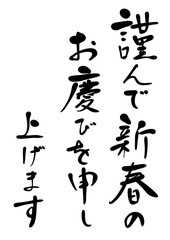 謹んで新春の
お慶びを申し
上げます